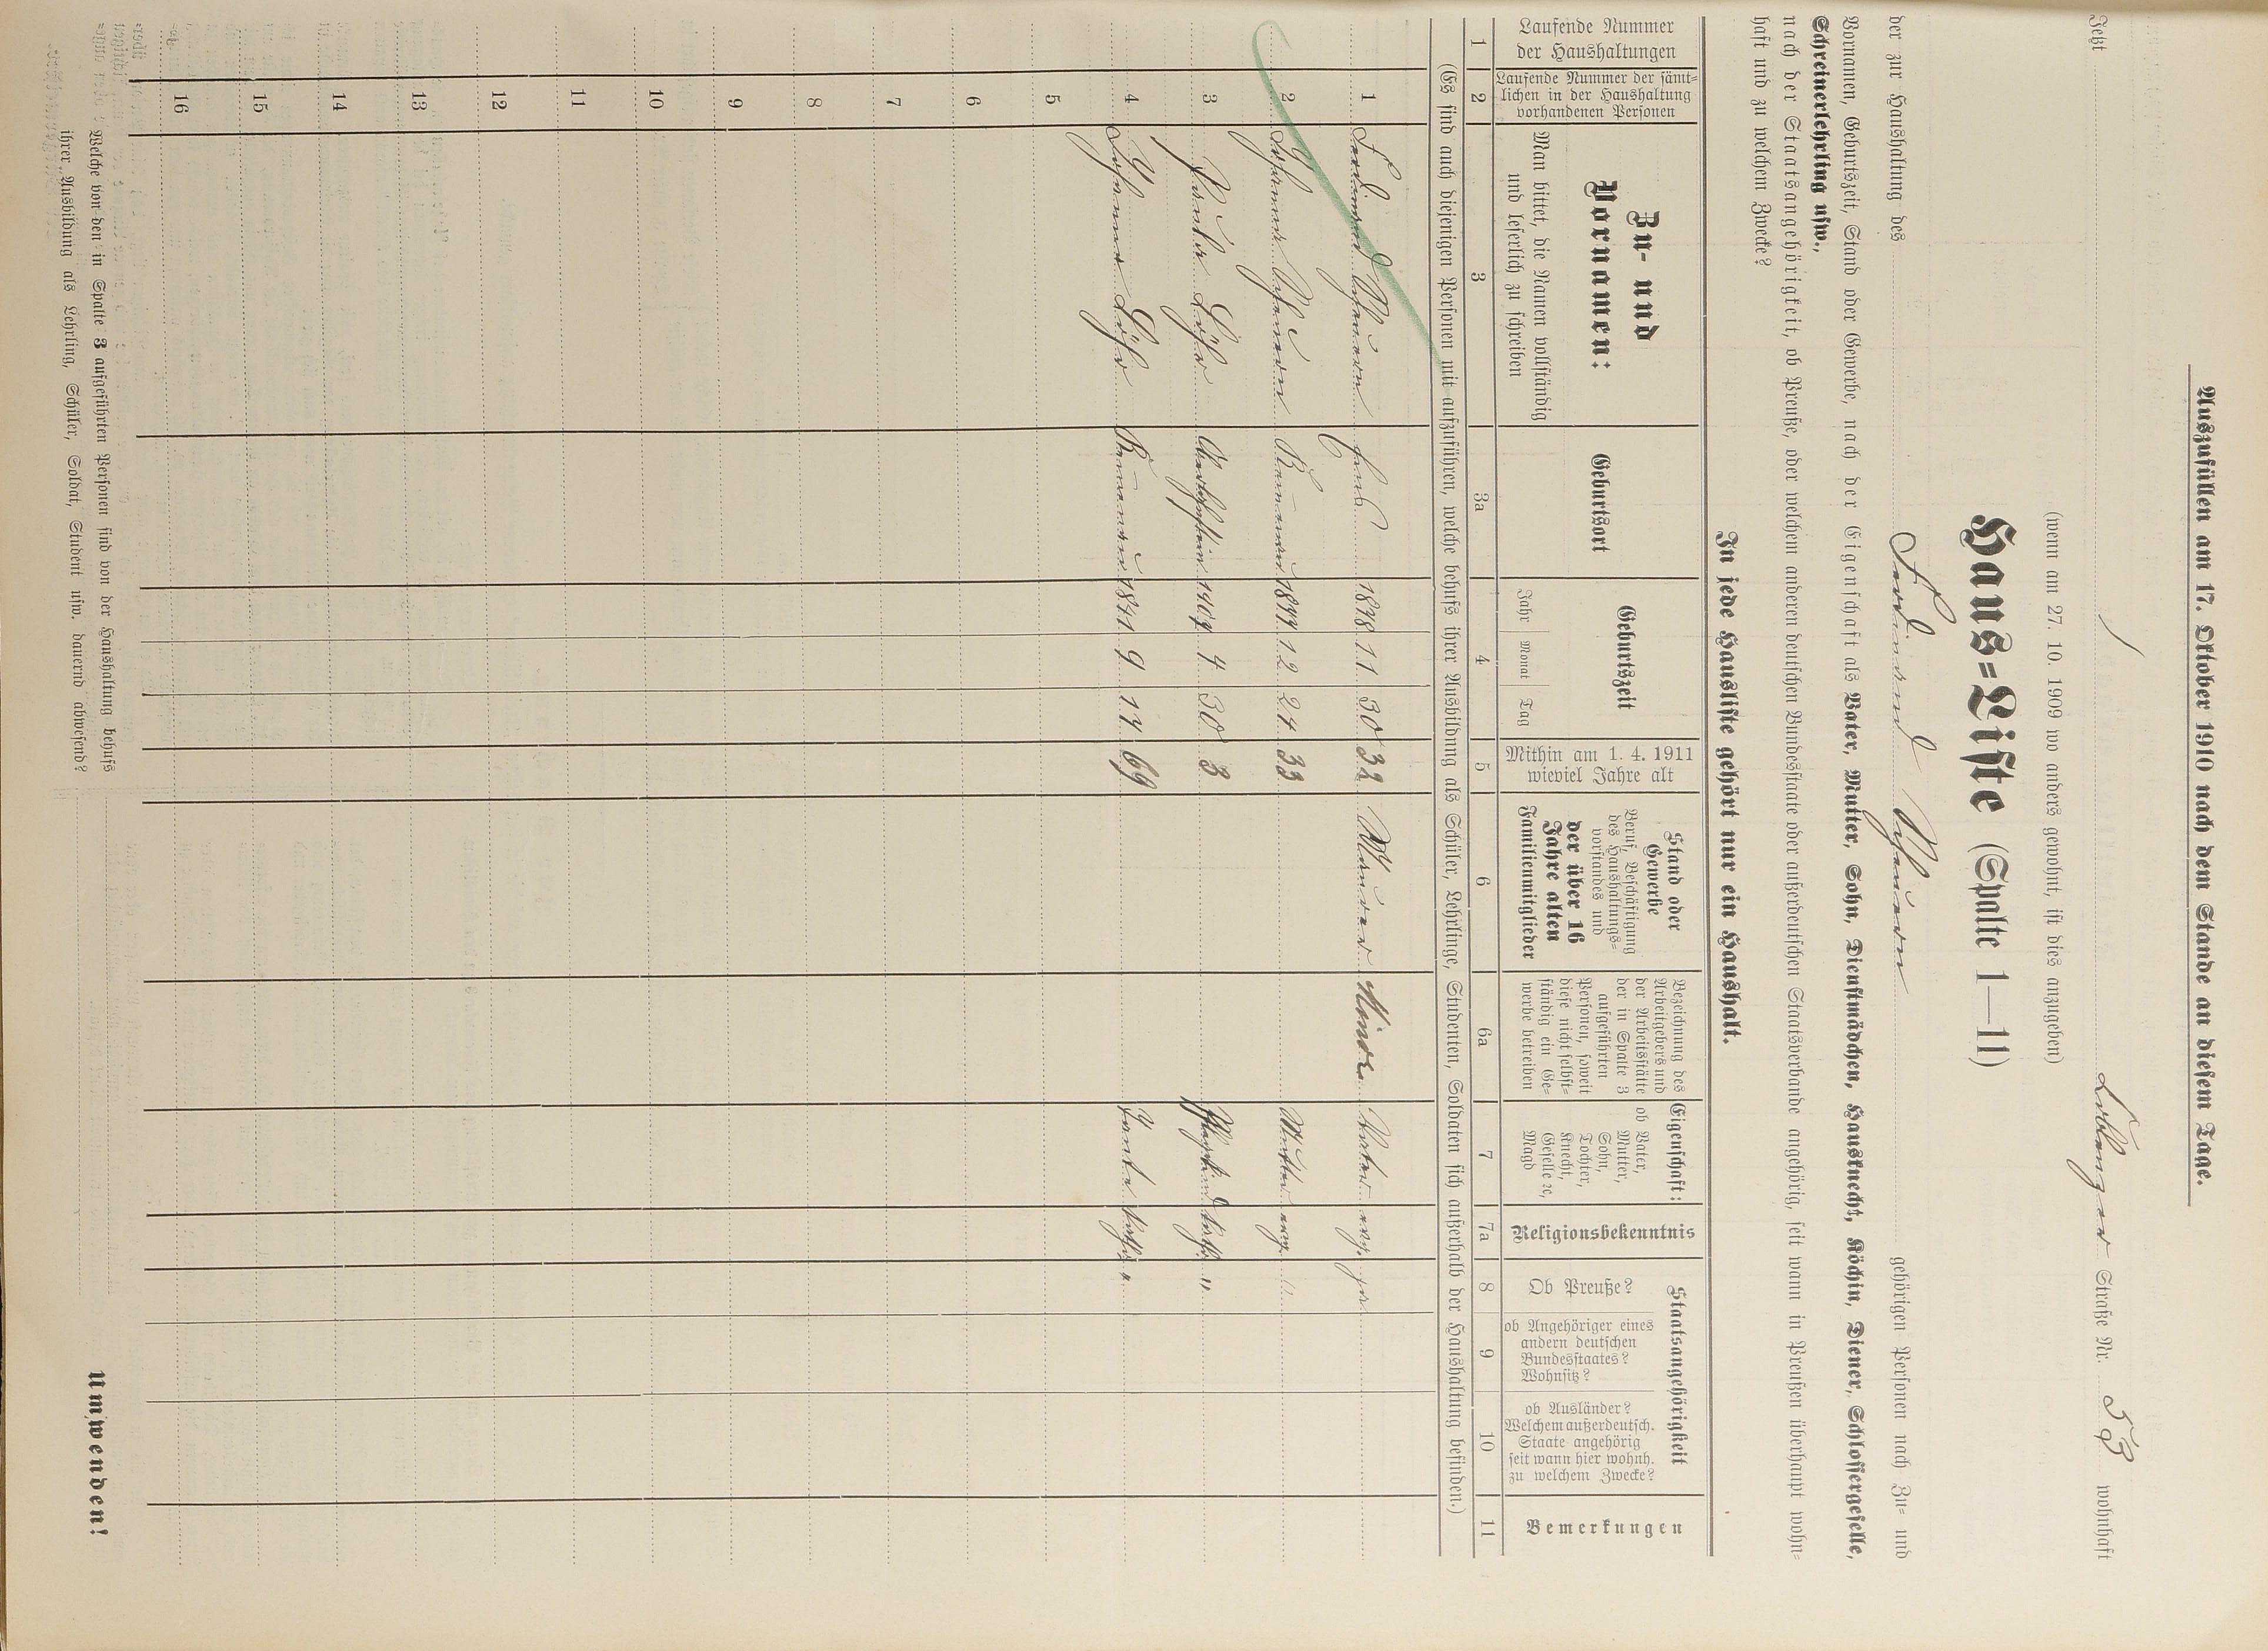 Auszufüllen am 17. Oktober 1910 nach dem Stande an diesem Tage.
Jetzt Coblenzer Straße Nr. 53 wohnhaft
(wenn am 27. 10. 1909 wo anders gewohnt, ist dies anzugeben)
Haus=Liste (Spalte 1—11)
der zur Haushaltung des Ferdinand gehörigen Personen nach Zu= und
Vornamen, Geburtszeit, Stand oder Gewerbe, nach der Eigenschaft als Vater, Mutter, Sohn, Dienstmädchen, Hausknecht, Köchin, Diener, Schlossergeselle,
Schreinerlehrling usw.,
nach der Staatsangehörigkeit, ob Preuße, oder welchem anderen deutschen Bundesstaate oder außerdeutschen Staatsverbande angehörig, seit wann in Preußen überhaupt wohn=
haft und zu welchem Zwecke?
In jede Hausliste gehört nur ein Haushalt.
Laufende Nummer
der Haushaltungen
Laufende Nummer der sämt=
lichen in der Haushaltung
vorhandenen Personen
Zu- und
Vornamen:
Man bittet, die Namen vollständig
und leserlich zu schreiben
Geburtsort
Geburtszeit
Jahr Monat Tag
Mithin am 1. 4. 1911
wieviel Jahre alt
Stand oder
Gewerbe
Beruf, Beschäftigung
des Haushaltungs=
vorstandes und
der über 16
Jahre alten
Familienmitglieder
Bezeichnung des
Arbeitgebers und
der Arbeitsstätte
der in Spalte 3
aufgeführten
Personen, soweit
diese nicht selbst=
ständig ein Ge=
werbe betreiben
Eigenschaft:
ob Vater,
Mutter,
Sohn,
Tochter,
Knecht,
Geselle ec,
Magd
Religionsbekenntnis
Staatsangehörigkeit
Ob Preuße?
ob Angehöriger eines
andern deutschen
Bundesstaates?
Wohnsitz?
ob Ausländer?
Welchem außerdeutsch.
Staate angehörig
seit wann hier wohnh.
zu welchem Zwecke?
Bemerkungen
1 2 3 3a 4 5 6 6a 7 7a 8 9 10 11
(Es sind auch diejenigen Personen mit aufzuführen, welche behufs ihrer Ausbildung als Schüler, Lehrlinge, Studenten, Soldaten sich außerhalb der Haushaltung befinden.)
1 Ferdinand 1878 11 30 32 Maurer Vater evg. ja
2 1877 12 24 33 Mutter evg. "
3 Paula Löhr 1907 4 30 3 Pflegekind kath. "
4 Johanna Löhr 1841 9 14 69 Tante kath. "
5
6
7
8
9
10
11
12
13
14
15
16
Welche von den in Spalte 3 aufgeführten Personen sind von der Haushaltung behufs
ihrer Ausbildung als Lehrling, Schüler, Soldat, Student usw. dauernd abwesend?
Umwenden!